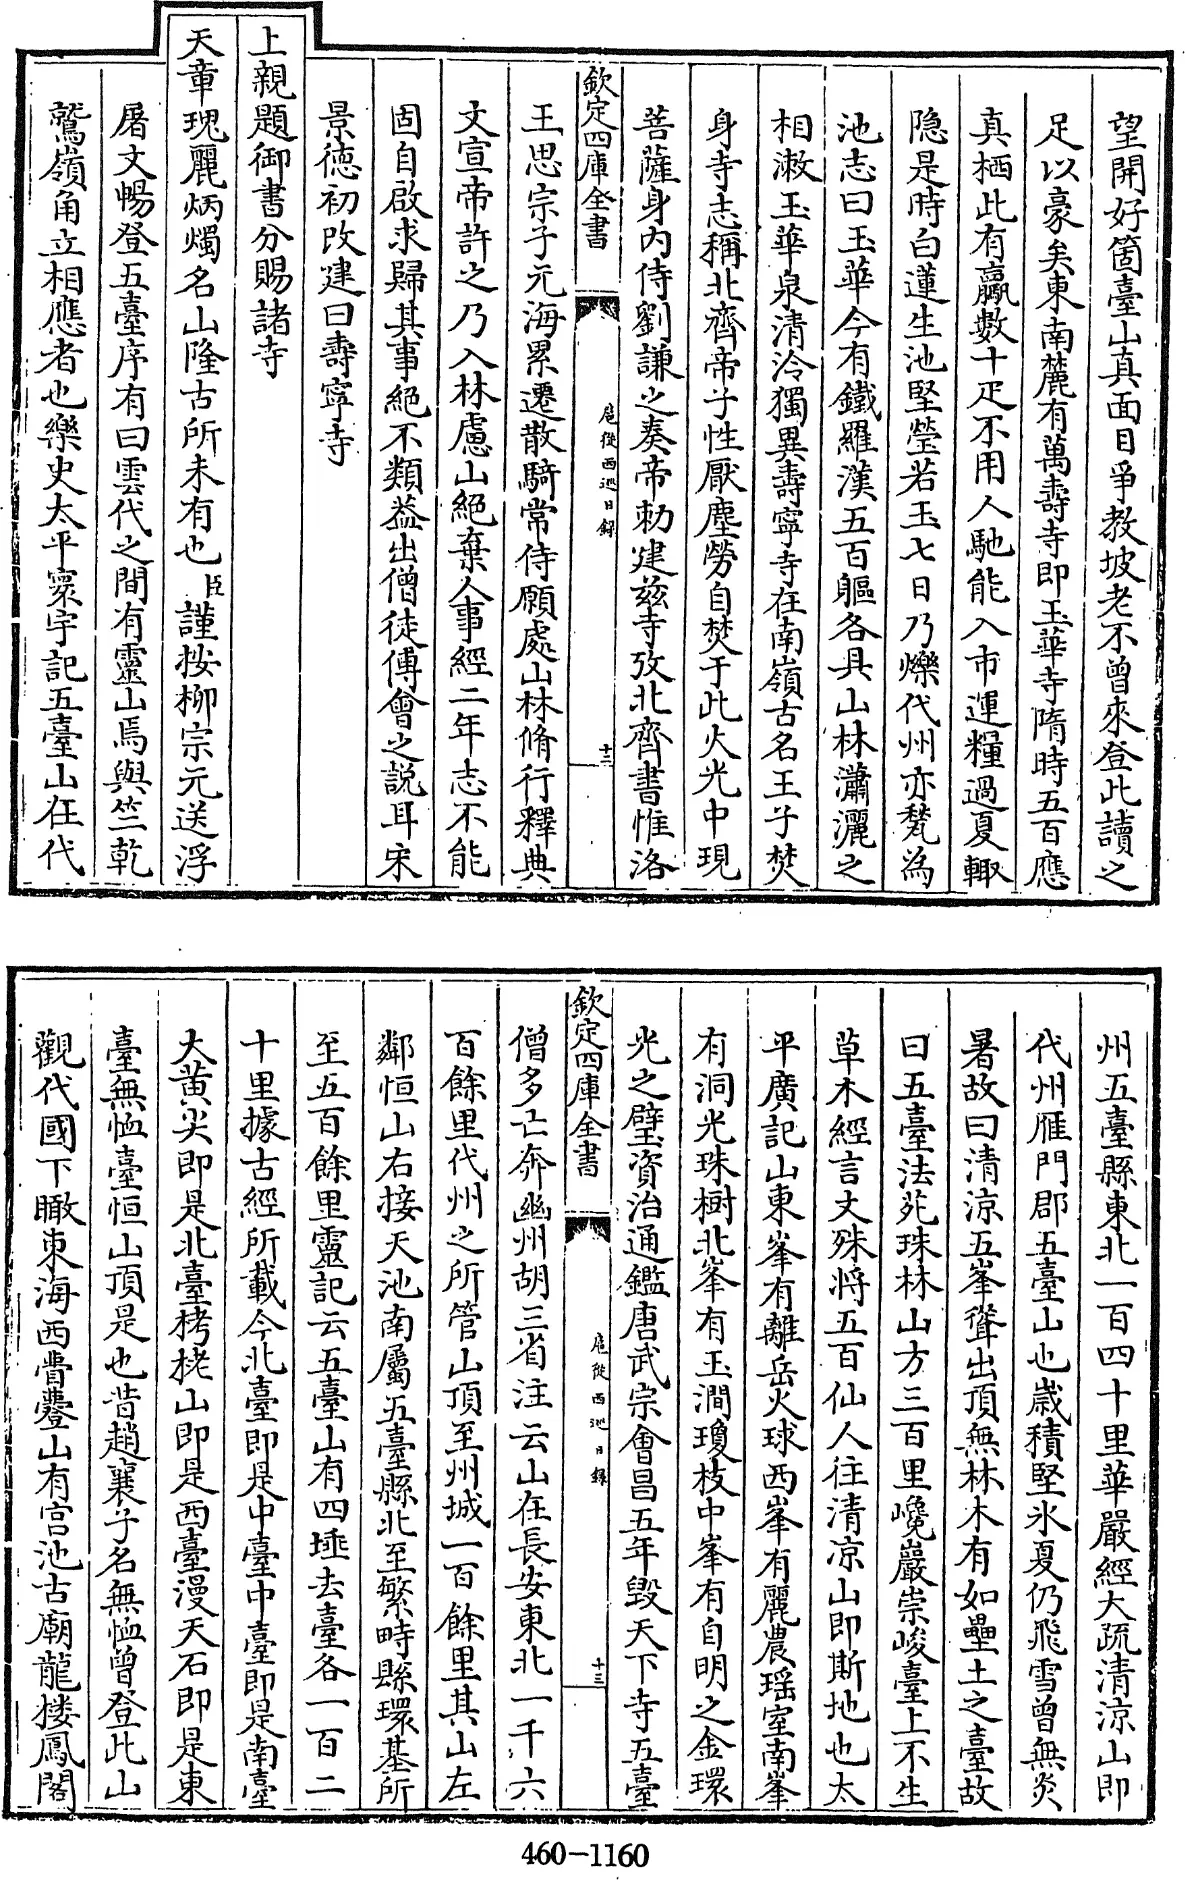 望開好箇臺山真面目爭教坡老不曾來登此讀之
足以豪矣東南麓有萬壽寺即玉華寺隋時五百應
真栖此有驘數十疋不用人馳能入市運糧過夏輙
隐是時白蓮生池堅瑩若玉七日乃爍代州亦甃為
池志曰玉華今有鐵羅漢五百軀各具山林瀟灑之
相漱玉華泉清泠獨異壽寧寺在南嶺古名王子焚
身寺志稱北齊帝子性厭塵勞自焚于此火光中現
菩薩身内侍劉謙之奏帝勅建兹寺攷北齊書惟洛
欽定四庫全書
扈從西巡日錄
十二
王思宗子元海累遷散騎常侍願處山林脩行釋典
文宣帝許之乃入林慮山絶棄人事經二年志不能
固自啟求歸其事絶不類葢出僧徒傅會之説耳宋
景德初改建曰壽寧寺
上親題御書分賜諸寺
天章瑰麗炳燭名山隆古所未有也臣謹按柳宗元送浮
屠文暢登五臺序有曰雲代之間有靈山焉與竺乾
鷲嶺角立相應者也樂史太平寰宇記五臺山在代
州五臺縣東北一百四十里華嚴經大疏清涼山即
代州雁門郡五臺山也歲積堅氷夏仍飛雪曾無炎
暑故曰清涼五峯聳出頂無林木有如壘土之臺故
曰五臺法苑珠林山方三百里巉巖崇峻臺上不生
草木經言文殊將五百仙人往清凉山即斯地也太
平廣記山東峯有離岳火球西峯有麗農瑶室南峯
有洞光珠樹北峯有玉澗瓊枝中峯有自明之金環
光之璧資治通鑑唐武宗會昌五年毀天下寺五臺
欽定四庫全書
扈從西巡日錄
十三
僧多亡奔幽州胡三省注云山在長安東北一千六
百餘里代州之所管山頂至州城一百餘里其山左
鄰恒山右接天池南屬五臺縣北至繁畤縣環基所
至五百餘里靈記云五臺山有四埵去臺各一百二
十里據古經所載今北臺即是中臺中臺即是南臺
大黄尖即是北臺栲栳山即是西臺漫天石即是東
臺無恤臺恒山頂是也昔趙襄子名無恤曾登此山
觀代國下瞰東海西瞢瞢山有宫池古廟龍樓鳳閣
460-1160